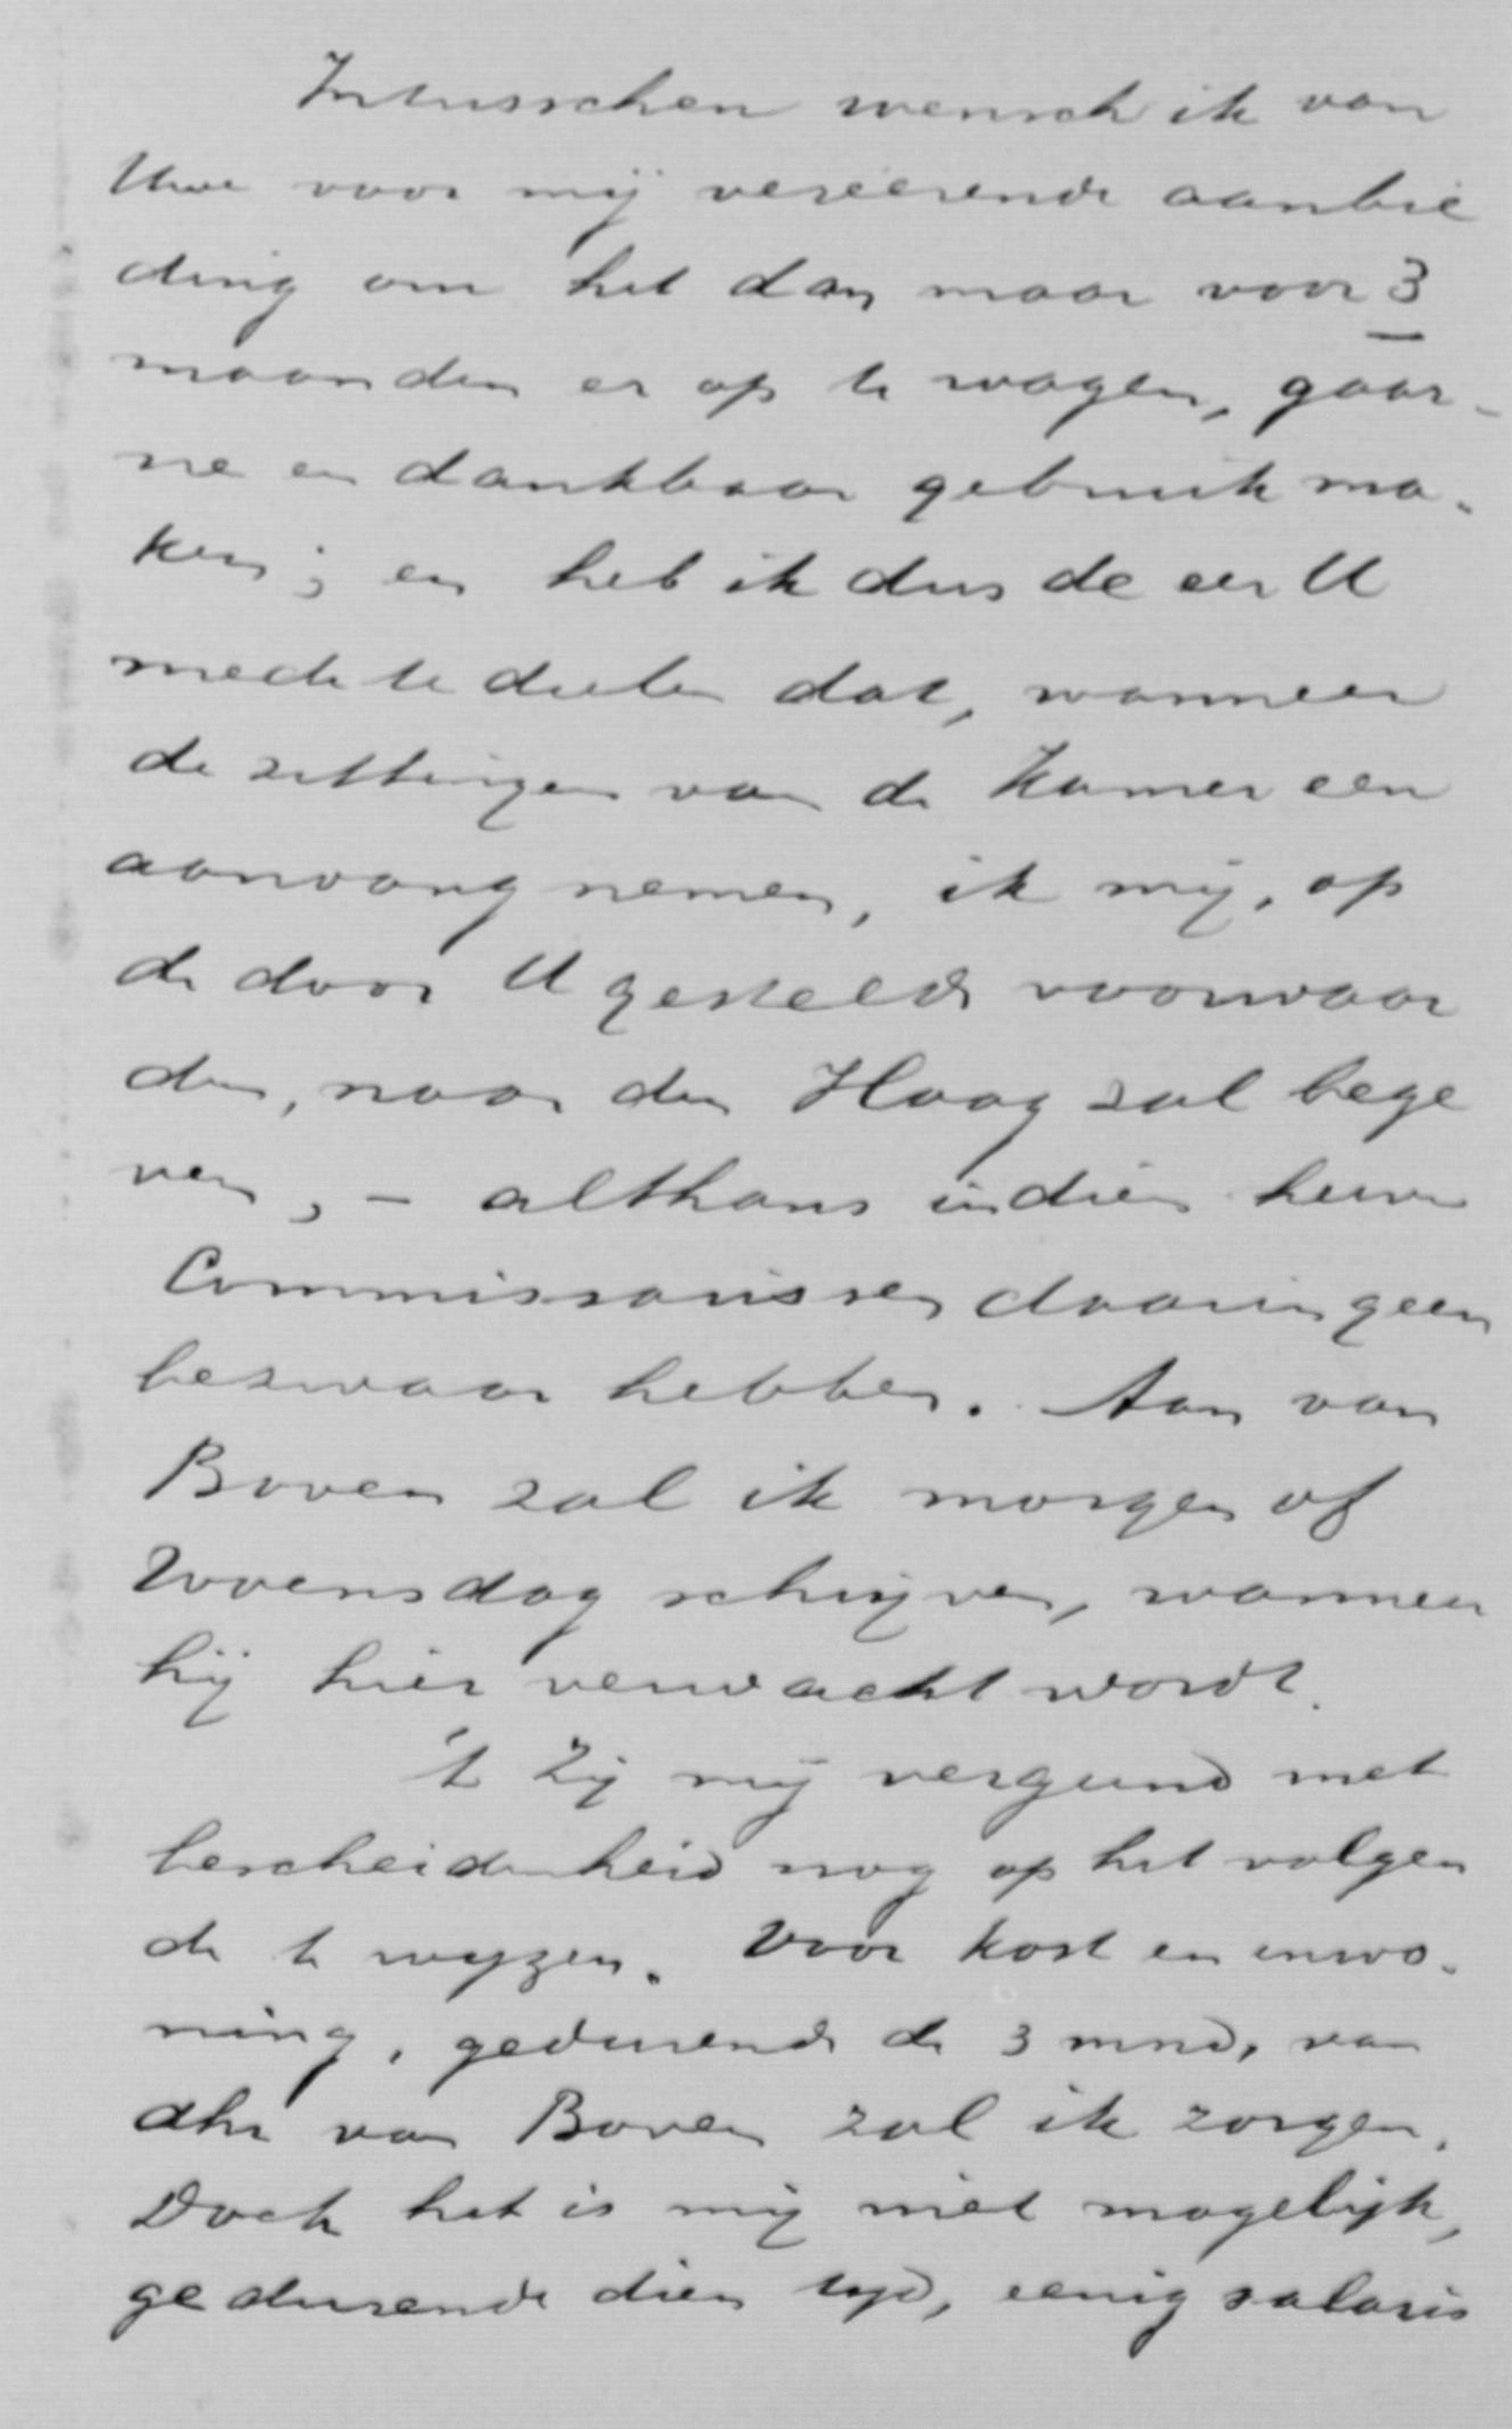 Intusschen wensch ik van
Uwe voor mij vereerende aanbie
ding om het dan maar voor 3
maanden er op te wagen, gaar-
ne en dankbaar gebruik ma-
ken; en heb ik dus de eer U
mede te deelen dat, wanneer
de zittingen van de Kamer een
aanvang nemen, ik mij, op
de door U gestelde voorwaar
den, naar den Haag zal bege
ven, - althans indien heeren
Commissarissen daarin geen
bezwaar hebben. Aan van
Boven zal ik morgen of
Woensdag schrijven, wanneer
hij hier verwacht wordt.
't Zij mij vergund met
bescheidenheid nog op het volgen
de te wijzen. Voor kost en inwo-
ning, gedurende de 3 mnd, van
dhr van Boven zal ik zorgen.
Doch het is mij niet mogelijk,
gedurende dien tijd, eenig salaris